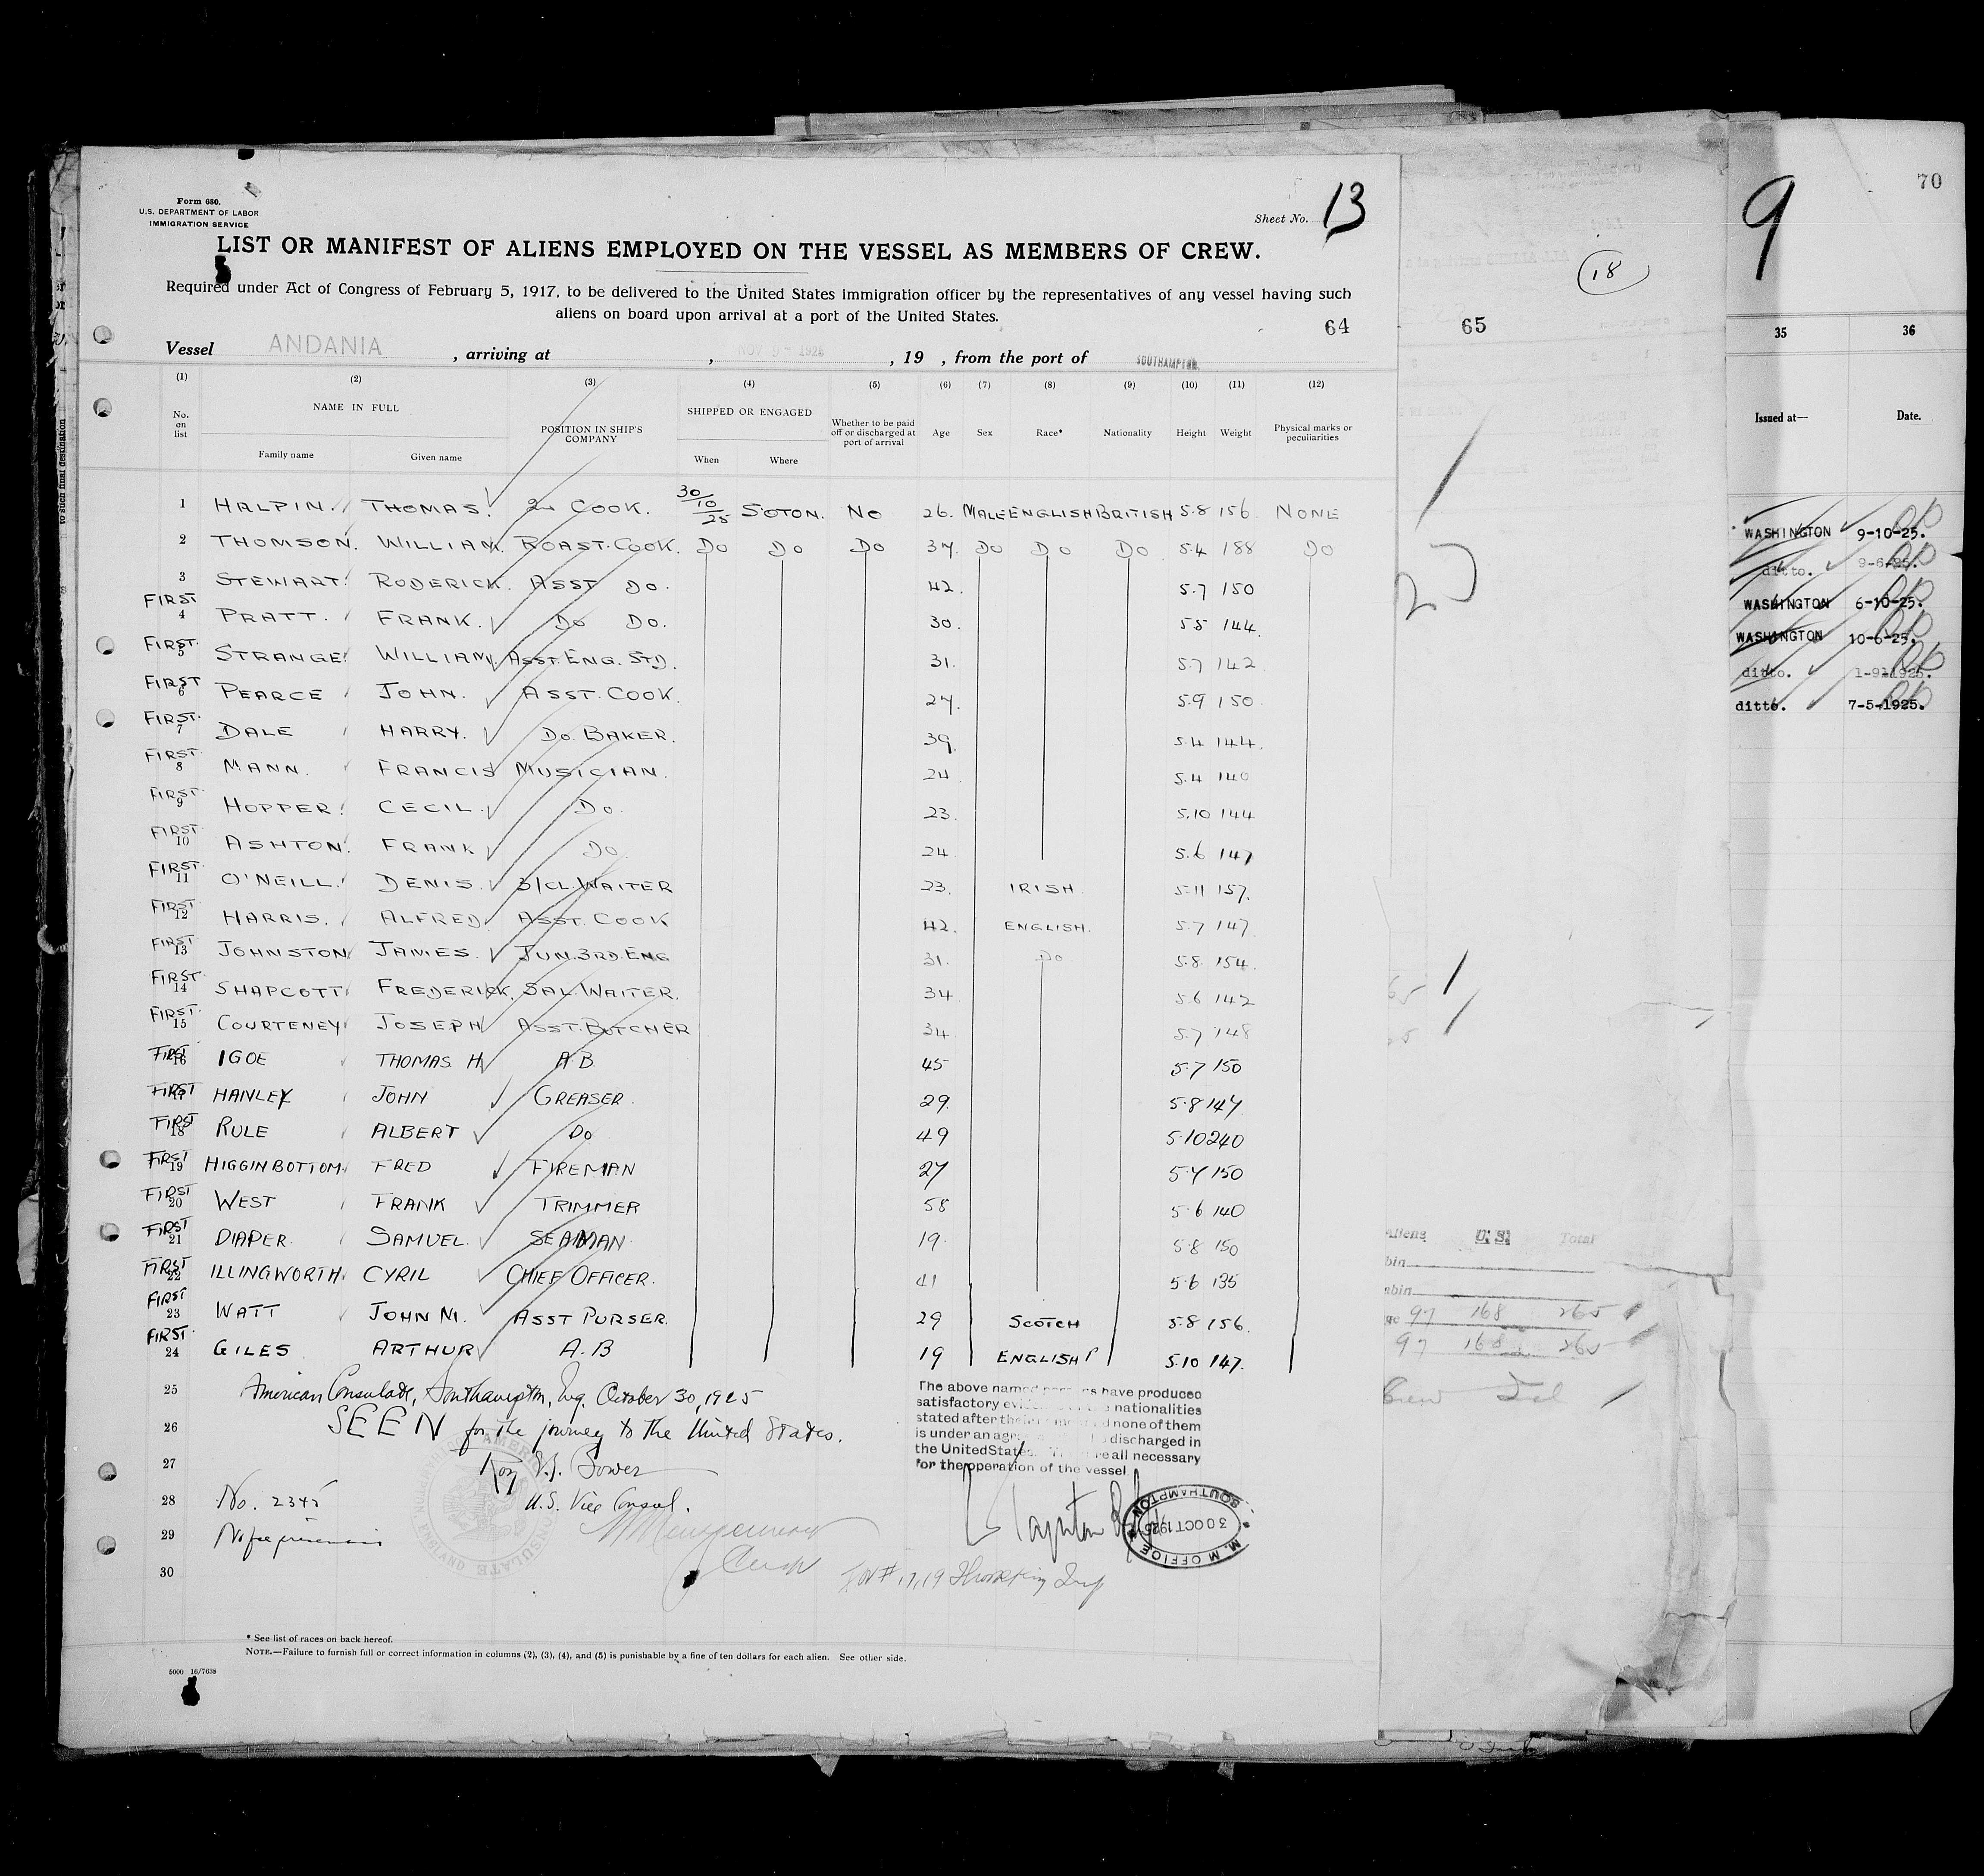 Form 680.
U.S. DEPARTMENT OF LABOR
IMMIGRATION SERVICE
Sheet No. 13
LIST OR MANIFEST OF ALIENS EMPLOYED ON THE VESSEL AS MEMBERS OF CREW.
Required under Act of Congress of February 5, 1917, to be delivered to the United States immigration officer by the representatives of any vessel having such
aliens on board upon arrival at a port of the United States.
64
Vessel ANDANIA , arriving at , , 19 , from the port of SOUTHAMPTON.
(1) (2) (3) (4) (5) (6) (7) (8) (9) (10) (11) (12)
No. on list NAME IN FULL Family name Given name POSITION IN SHIP'S COMPANY SHIPPED OR ENGAGED When Where Whether to be paid off or discharged at port of arrival Age Sex Race* Nationality Height Weight Physical marks or peculiarities
1 HALPIN. THOMAS. 2nd COOK. 30/10/25 S'OTON. NO 26. MALE ENGLISH BRITISH 5.8 156 NONE
2 THOMSON. WILLIAM. ROAST.COOK. DO DO DO 37. DO DO DO 5.4 188 DO
3 STEWART. RODERICK. ASST DO. 42. 5.7 150
FIRST 4 PRATT. FRANK. DO DO. 30. 5.5 144.
FIRST. 5 STRANGE. WILLIAM. ASST.ENG.STD. 31. 5.7 142
FIRST 6 PEARCE JOHN. ASST.COOK. 27. 5.9 150
FIRST. 7 DALE HARRY. DO. BAKER. 39. 5.4 144.
FIRST. 8 MANN. FRANCIS MUSICIAN. 24. 5.4 140
FIRST. 9 HOPPER. CECIL. DO. 23. 5.10 144
FIRST. 10 ASHTON. FRANK DO 24. 5.6 147
FIRST. 11 O'NEILL. DENIS. 3/CL.WAITER 23. IRISH. 5.11 157.
FIRST. 12 HARRIS. ALFRED. ASST.COOK 42. ENGLISH. 5.7 147.
FIRST. 13 JOHNSTON JAMES. JUN.3RD.ENG 31. DO 5.8. 154.
FIRST. 14 SHAPCOTT FREDERICK. SAL.WAITER. 34 5.6 142
FIRST. 15 COURTENEY JOSEPH ASST.BUTCHER 34 5.7 148
FIRST 16 IGOE THOMAS H A.B 45 5.7 150
FIRST 17 HANLEY JOHN GREASER. 29. 5.8 147.
FIRST 18 RULE ALBERT DO 49 5.10 240
FIRST 19 HIGGINBOTTOM FRED FIREMAN 27 5.7 150
FIRST 20 WEST FRANK TRIMMER 58 5.6 140
FIRST 21 DIAPER. SAMUEL. SEAMAN 19. 5.8 150
FIRST 22 ILLINGWORTH. CYRIL CHIEF OFFICER. 41 5.6 135
FIRST 23 WATT JOHN M. ASST PURSER. 29 SCOTCH 5.8 156.
FIRST. 24 GILES ARTHUR A.B 19 ENGLISH 5.10 147.
25 American Consulate, Southampton, Eng. October 30, 1925
26 SEEN for the journey to the United States.
27 Roy
28 No. 2345 U.S. Vice Consul.
29 No fee
30
The above named have produced
satisfactory nationalities
stated after their none of them
is under an discharged in
the United States all necessary
for the operation of the vessel.
M. M OFFICE SOUTHAMPTON
30 OCT 1925
* See list of races on back hereof.
NOTE.—Failure to furnish full or correct information in columns (2), (3), (4), and (5) is punishable by a fine of ten dollars for each alien. See other side.
5000 16/7638
to such final destination
65
18
Aliens U.S. Total
97 168 265
97 168 265
Crew
9
70
35 36
Issued at— Date.
WASHINGTON 9-10-25.
ditto. 9-6-25.
WASHINGTON 6-10-25.
WASHINGTON 10-6-25.
ditto. 1-9-1925.
ditto. 7-5-1925.